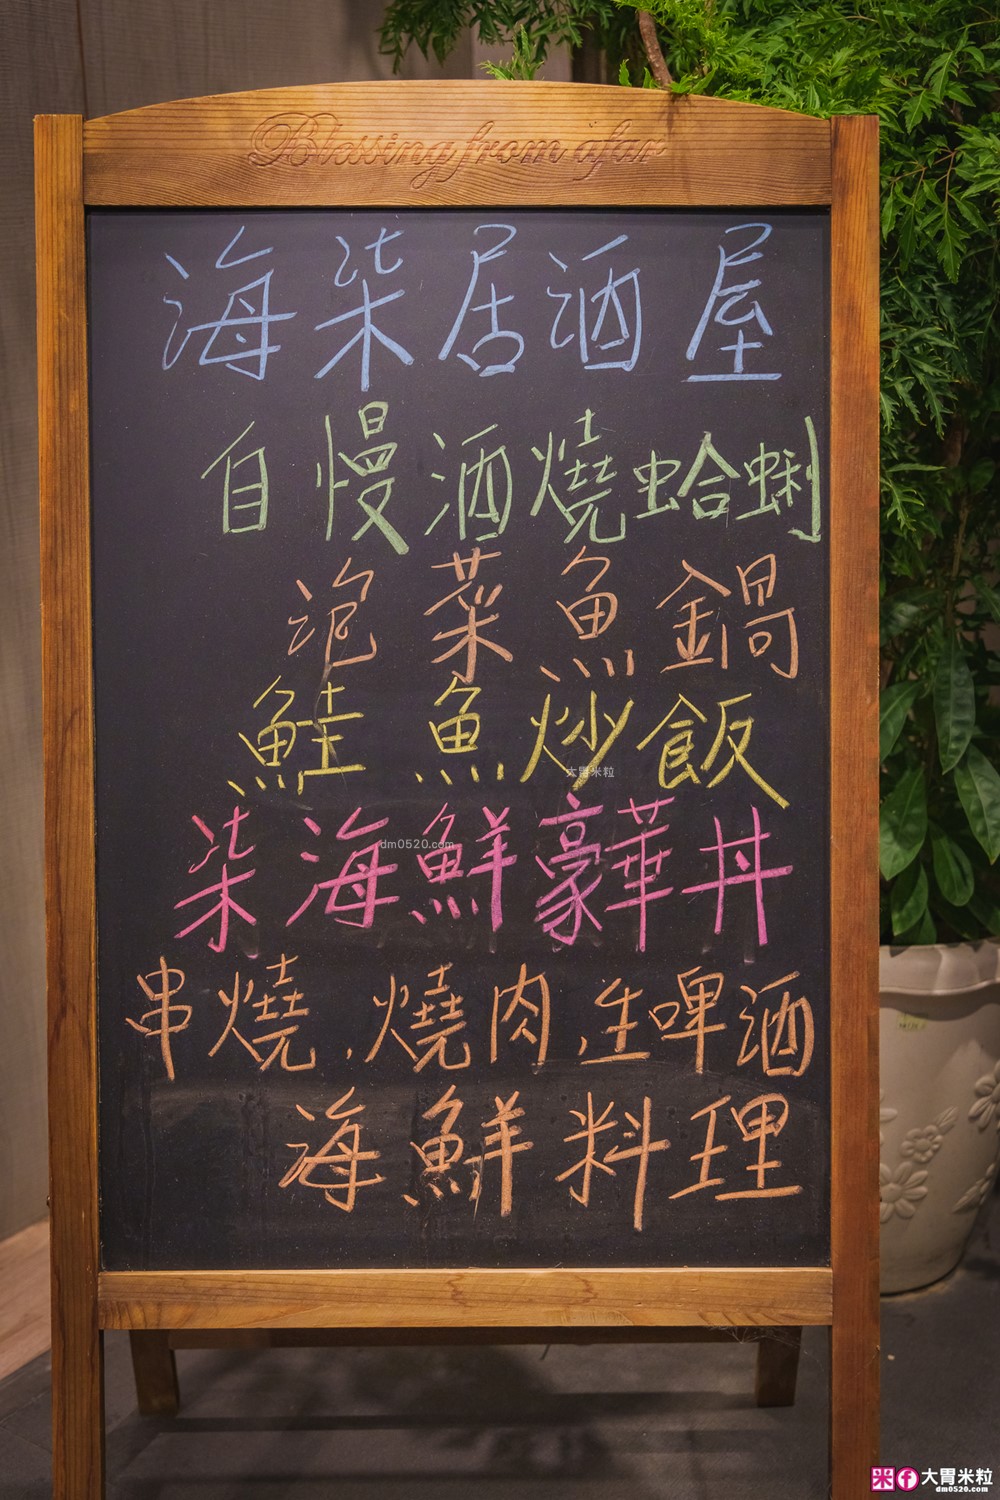 Blessing from afar
海柒居酒屋
自慢酒燒蛤蜊
泡菜魚鍋
鮭魚炒飯
大胃米粒
柒海鮮豪華丼
dm0520.com
串燒,燒肉,生啤酒
海鮮料理
米 f 大胃米粒
dm0520.com